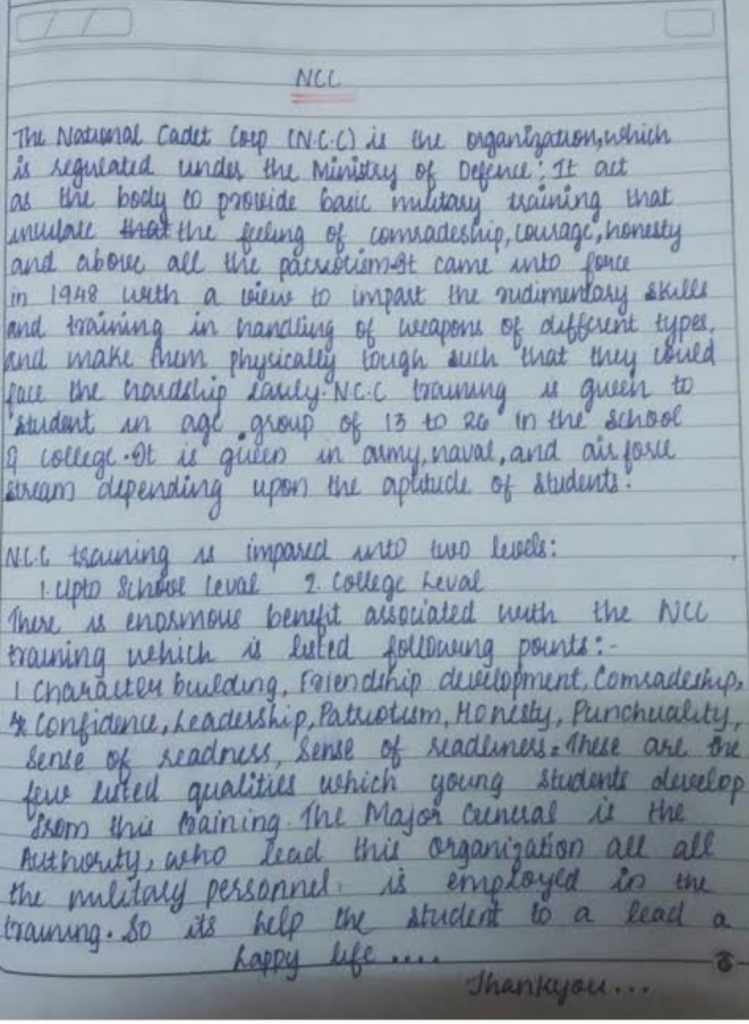 NCC
The National Cadet Corp (N.C.C) is the organization, which
is regulated under the Ministry of Defence: It act
as the body to provide basic military training that
inculate that the feeling of comradeship, courage, honesty
and above all the patriotism. It came into force
in 1948 with a view to impart the rudimentary skills
and training in handling of weapons of different types,
and make them physically tough such that they could
face the hardship easily. N.C.C training is given to
student in age group of 13 to 26 in the school
& college. It is given in army, naval, and air force
stream depending upon the aptitude of students.
N.C.C training is impared into two levels:
1. Upto School Leval 2. College Leval
There is enormous benefit associated with the NCC
training which is listed following points:-
1 Character building, Friendship development, Comradeship,
Confidence, Leadership, Patriotism, Honesty, Punchuality,
Sense of readness, Sense of readiness. These are the
few listed qualities which young students develop
from this training. The Major General is the
Authority, who lead this organization all all
the military personnel. is employed in the
training. So its help the student to a lead a
happy life ....
Thankyou...